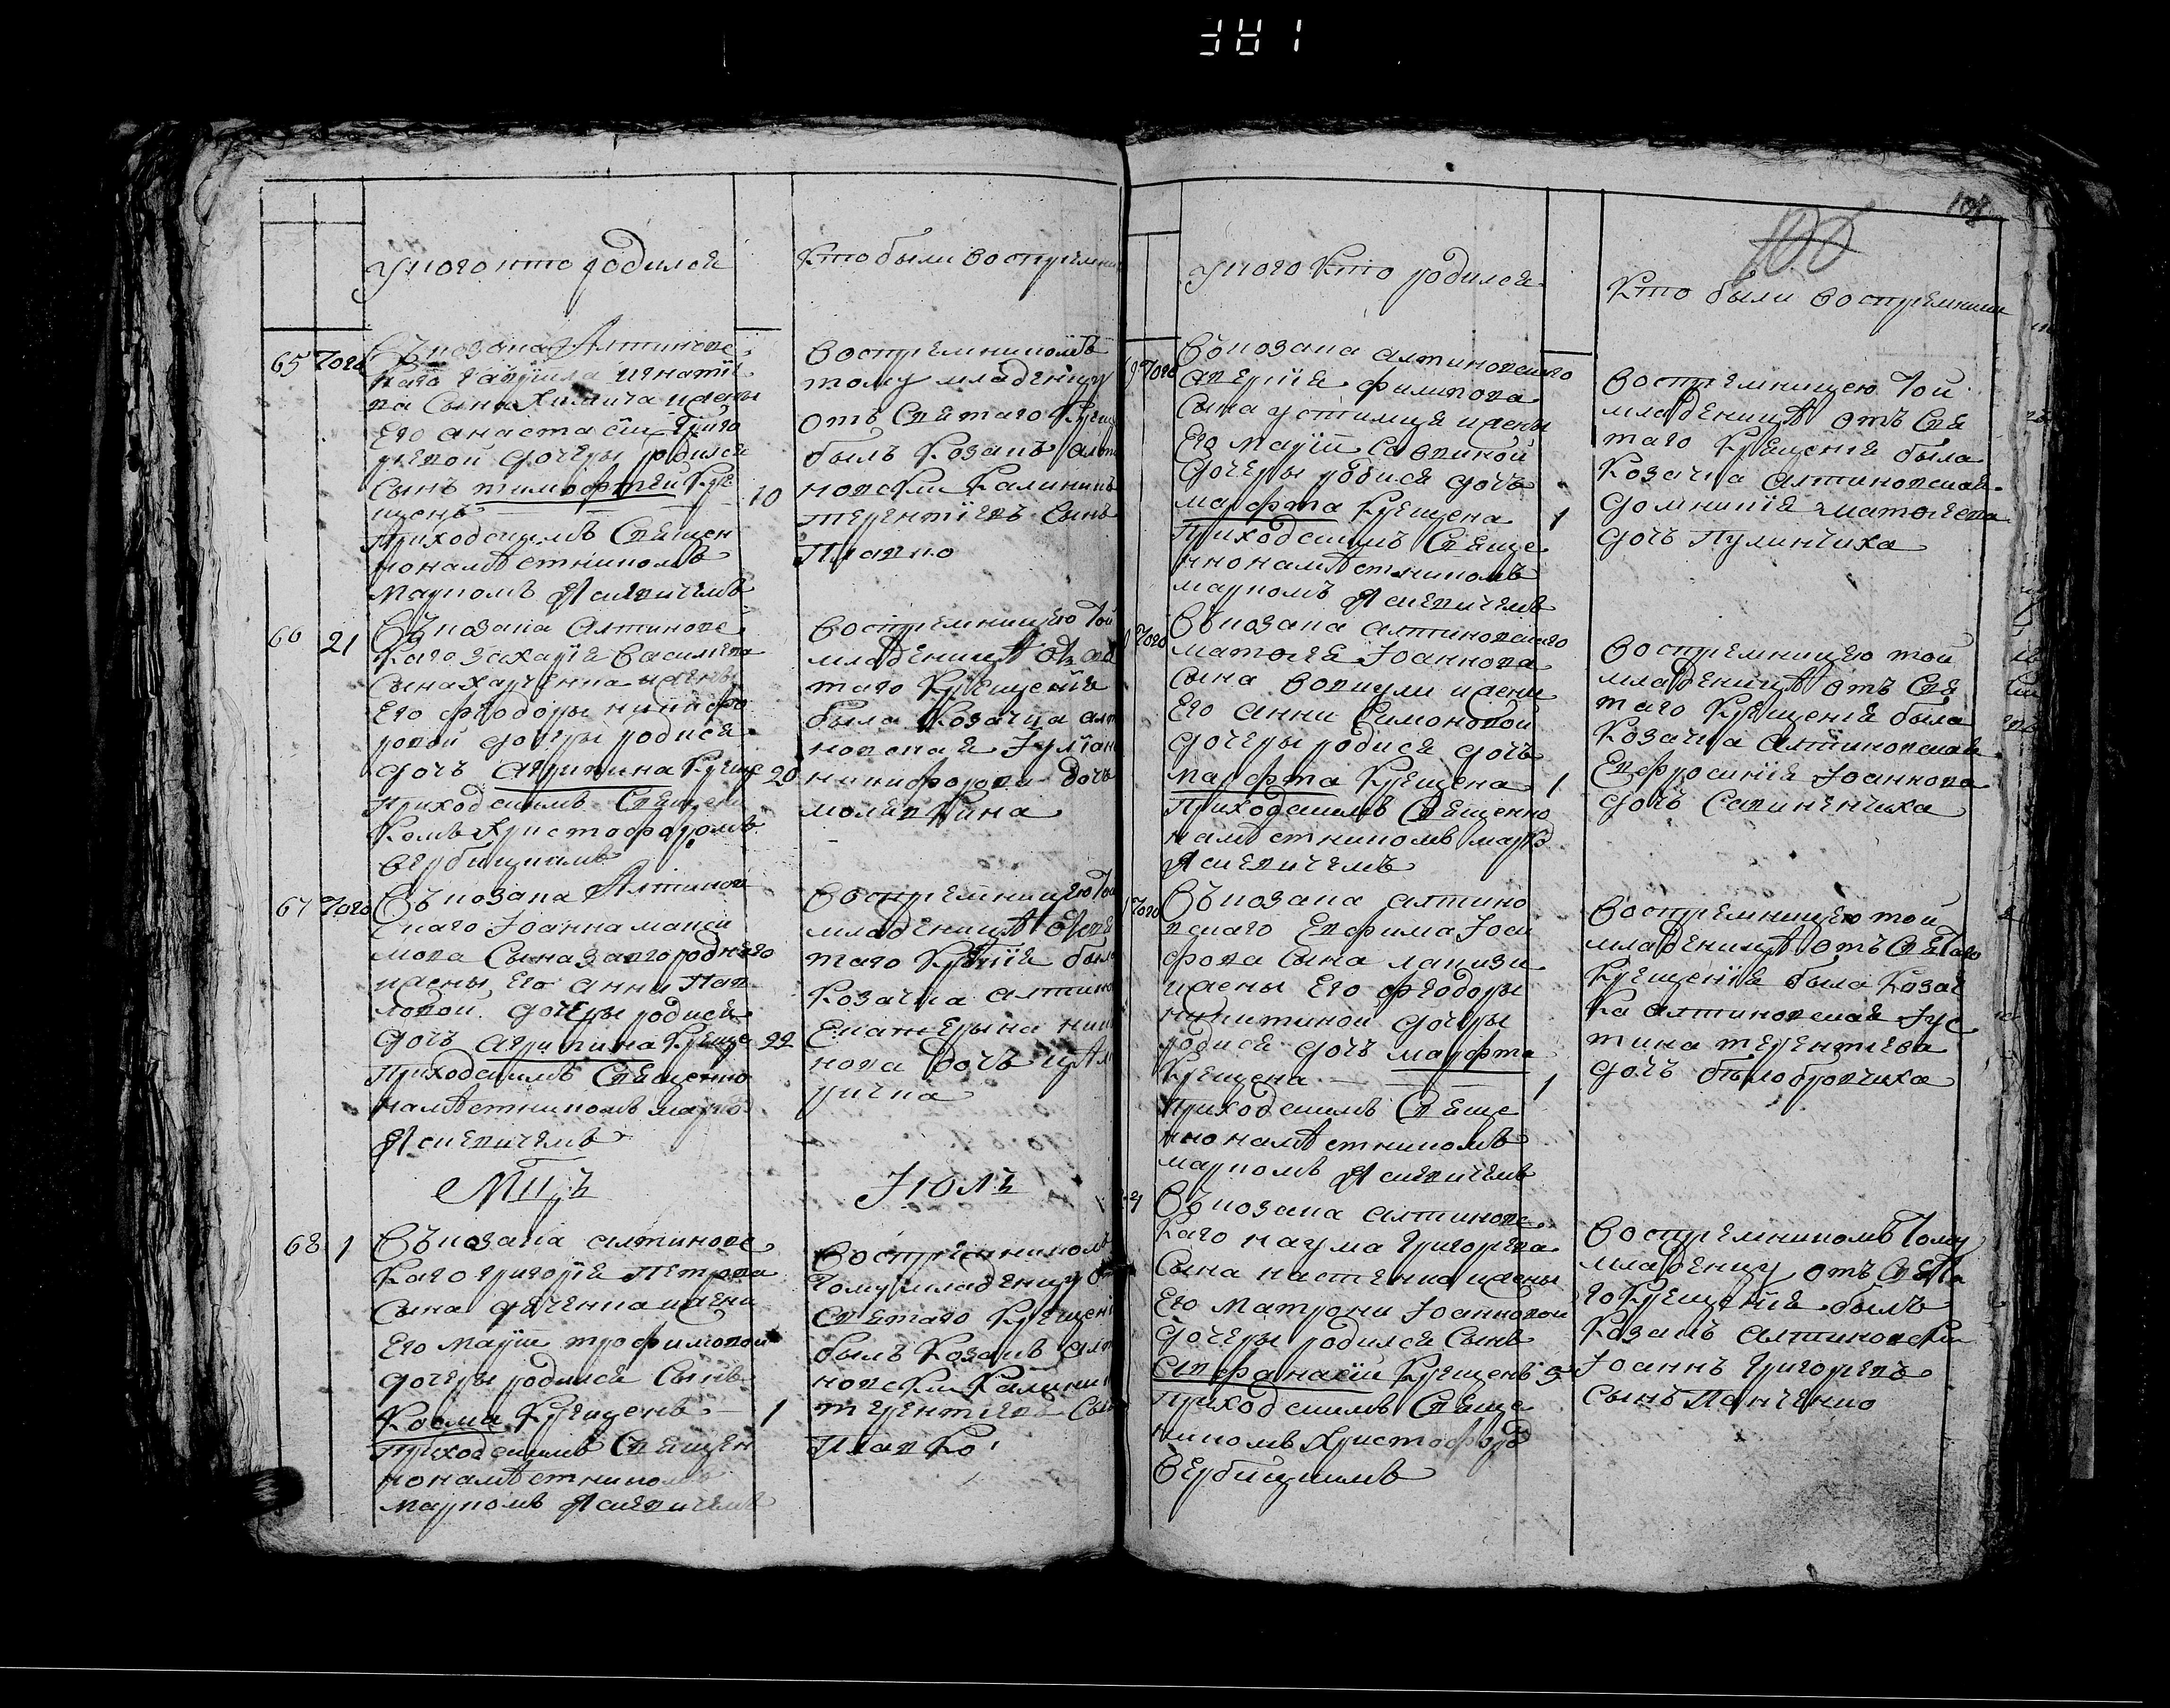 381
101
100
У кого кто родился
Кто были восприемни
65 Того
Въ козака Алтиновс
каго Гаврiила Игнатiе
ва сына Химича и жены
Его Анастасiи Григо
риевой дочеры родился
сынъ Тимофтей кре
щенъ 20
приходскимъ священ
нонамѣстникомъ
Маркомъ Яснѣвичемъ
Восприемникомъ
тому младенцу
отъ святаго крещ
былъ козакъ алти
новски Калининъ
Терентiевъ сынъ
Плавко
66 21
Въ козака алтиновс
каго Захарiя Василева
сына Харченка жены
Его Феодоры Никифо
ровой дочеры родися
дочъ Агрипина креще 20
приходскимъ священи
комъ Христофоромъ
Вербицкимъ
Восприемницею той
младеницѣ отъ свя
таго крещенiя
была козачка алти
новская Iулiан
Никифорова дочъ
67 Того
Въ козака Алтинов
скаго Iоанна Макси
мова сына Загороднего
жены его Анни Пав
ловой дочеры родися
дочъ Агрипина креще 22
приходскимъ священно
намѣстникомъ Марко
Яснѣвичемъ
Восприемницею той
младеницѣ от свя
таго крещнiя была
козачка алтино
Екатерына
нова дочъ
МЦЪ Iюлъ
68 1
Въ козака алтиновс
каго Григорiя Петрова
сына Дяченка жени
Его Марiи Трофимовой
дочеры родился сынъ
Косма крещенъ 1
приходскимъ священ
нонамѣстником
Маркомъ Яснѣвичемъ
Восприемникомъ
тому младенцу от
святаго крещенi
былъ козакъ алти
новски Калинин
Терентiевъ сын
Плавко
У кого кто родился
Кто были восприемники
Того
Въ козака алтиновскаго
Аверкiя Филипова
сына Устимця жены
Его Марiи Саввиной
дочеры родися дочъ
Марфта крещена 1
приходскимъ свяще
ннонамѣстникомъ
Маркомъ Яснѣвичемъ
Восприемницею той
младеницѣ отъ свя
таго крещенiя была
козачка алтиновская
Домникiя Матвеева
дочъ Пулинчиха
Того
Въ козака алтиновскаго
Матвея Iоаннова
сына Вовкули жени
Его Анни Симоновой
дочеры родися дочъ
Марфта крещена 1
приходскимъ священно
намѣстникомъ Марко
Яснѣвичемъ
Восприемницею той
младеницѣ отъ свя
таго крещенiя была
козачка алтиновская
Евфросинiя Iоаннова
дочъ Савинчиха
Того
Въ козака алтино
вскаго Евфима Iоси
фова сына Лапизи
жены Его Феодоры
Никитиной дочеры
родися дочъ Марфта
крещена 1
приходскимъ свяще
ннонамѣстникомъ
Маркомъ Яснѣвичемъ
Восприемницею той
младеницѣ отъ святаго
крещенiя была козач
ка алтиновская Iус
тина Терентiева
дочъ Бѣлобровчиха
Въ козака алтиновс
каго Наума Григориева
сына Настенка жены
Его Матрони Iоанновой
дочеры родился сынъ
Афанасiй крещенъ 5
приходскимъ свяще
никомъ Христофоро
Вербицкимъ
Восприемникомъ тому
младенцу отъ свята
го крещенiя былъ
козакъ алтиновски
Iоаннъ Григориевъ
сынъ Панченко